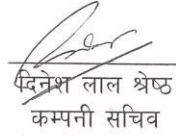 दिनेश लाल श्रेष्ठ
कम्पनी सचिव